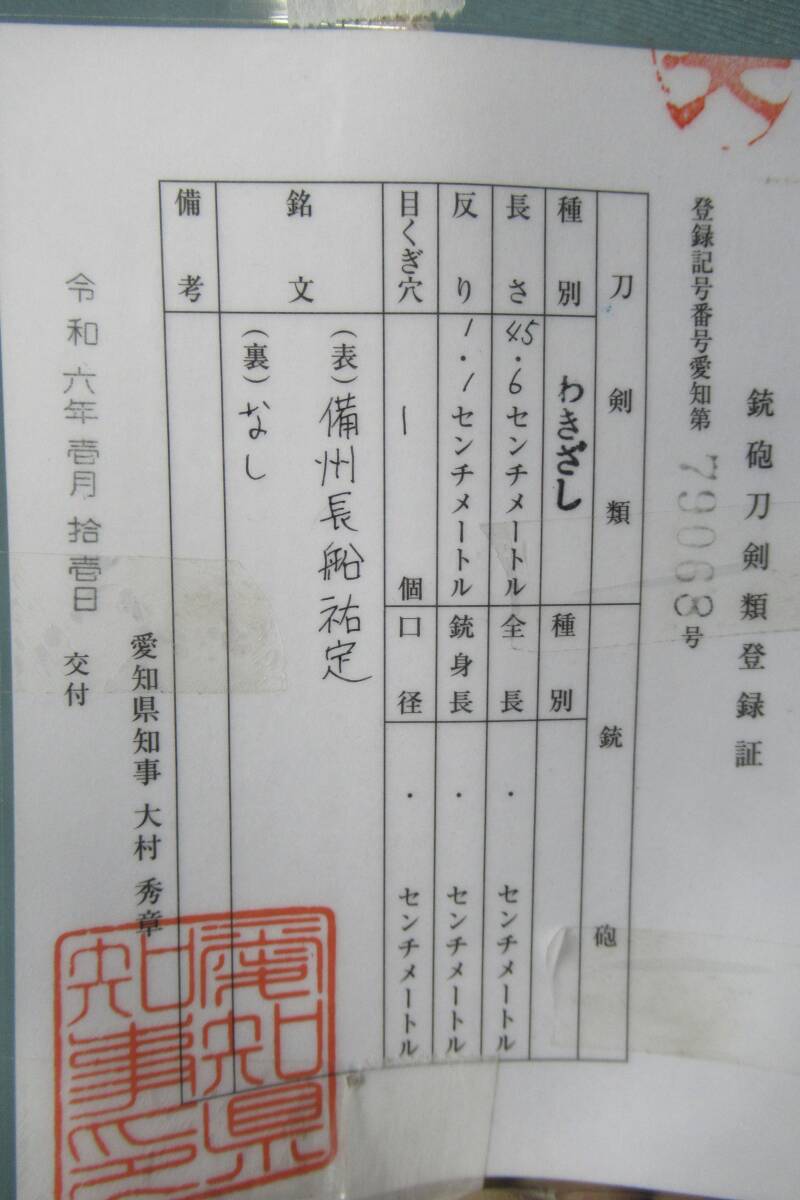 銃砲刀剣類登録証
登録記号番号愛知第79063号
刀剣類
種別 わきざし
長さ 45.6センチメートル
反り 1.1センチメートル
目くぎ穴 1個
銃砲
種別
全長 ・ センチメートル
銃身長 ・ センチメートル
口径 ・ センチメートル
銘文 (表)備州長船祐定
(裏)なし
備考
愛知県知事 大村秀章
令和六年壱月拾壱日 交付
愛知県
知事印